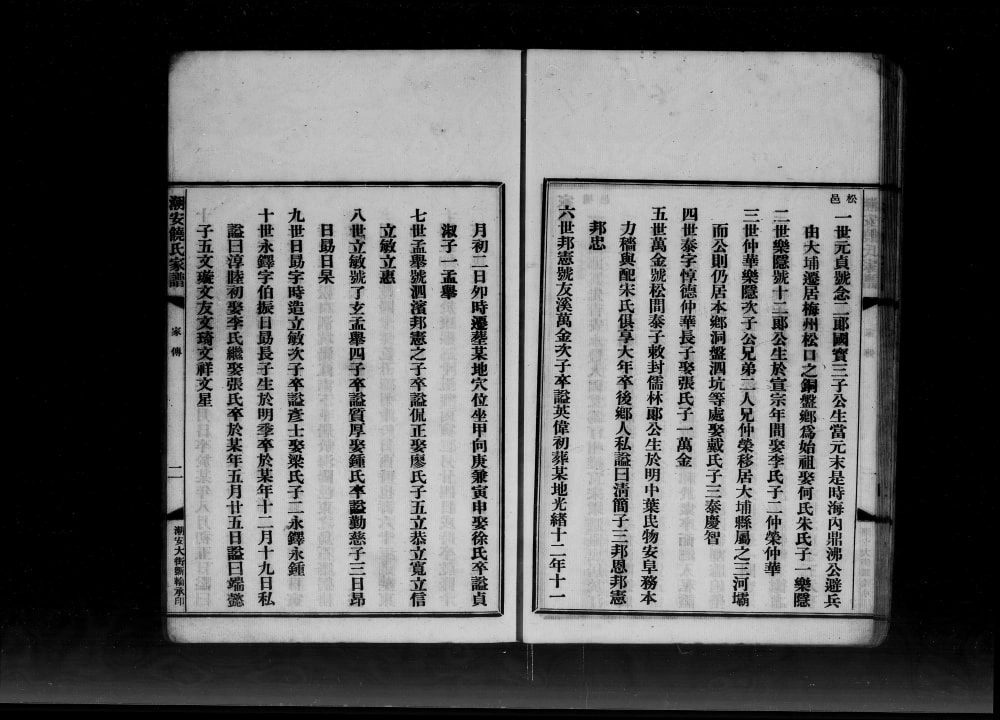 松邑
一世元貞號念二郞國寶三子公生當元末是時海內鼎沸公避兵
由大埔遷居梅州松口之銅盤鄉爲始祖娶何氏朱氏子一樂隱
二世樂隱號十二郞公生於宣宗年間娶李氏子二仲榮仲華
三世仲華樂隱次子公兄弟二人兄仲榮移居大埔縣屬之三河壩
而公則仍居本鄉洞盤泗坑等處娶戴氏子三泰慶智
四世泰字惇德仲華長子娶張氏子一萬金
五世萬金號松問泰子敕封儒林郞公生於明中葉民物安阜務本
力穡與配宋氏俱享大年卒後鄉人私謚曰淸簡子三邦恩邦憲
邦忠
六世邦憲號友溪萬金次子卒謚英偉初葬某地光緖十二年十一
月初二日夘時遷葬某地穴位坐甲向庚兼寅申娶徐氏卒謚貞
淑子一孟舉
七世孟舉號泗濱邦憲之子卒謚侃正娶廖氏子五立恭立寬立信
立敏立惠
八世立敏號了玄孟舉四子卒謚質厚娶鍾氏卒謚勤慈子三日昂
日勗日杲
九世日勗字時造立敏次子卒謚彥士娶梁氏子二永鐸永鍾
十世永鐸字伯振日勗長子生於明季卒於某年十二月十九日私
謚曰淳睦初娶李氏繼娶張氏卒於某年五月廿五日謚曰端懿
子五文璇文友文琦文祥文星
潮安饒氏家譜
家傳
二
潮安大街斯輪承印